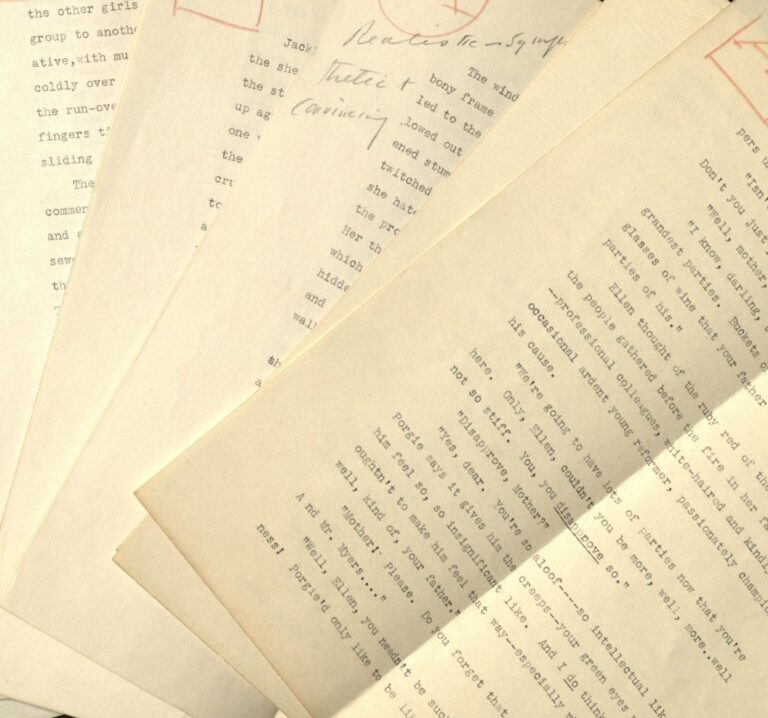 the other girls
group to anothe
ative,with mu
coldly over
the run-ove
fingers ti
sliding
The
commen
and a
sew
th
Jack
the she
the st
up ag
one
the
cru
to
a
Realistic - Symp
thetic +
Convincing
The wind
bony frame
led to the
lowed out
ened stum
twitched
she hate
the pro
Her th
which
hidde
and
wall
th
a
pers u
"Isn't
Don't you just
"Well, mother,
"I know, darling,
grandest parties. Buckets o
glasses of wine that your father
parties of his."
Ellen thought of the ruby red of the
the people gathered before the fire in her fa
--professional colleagues, white-haired and kindly
occasional ardent young reformer, passionately champio
his cause.
"We're going to have lots of parties now that you're
here. Only, Ellen, couldn't you be more, well, more..well
not so stiff. You, you disapprove so."
"Disapprove, Mother?"
"Yes, dear. You're so aloof----so intellectual lik
Porgie says it gives him the creeps--your green eyes
him feel so, so insignificant like. And I do think
oughtn't to make him feel that way--especially w
well, kind of, your father."
"Mother! Please. Do you forget that
And Mr. Myers...."
"Well, Ellen, you needn't be suc
ness! Porgie'd only like to be li